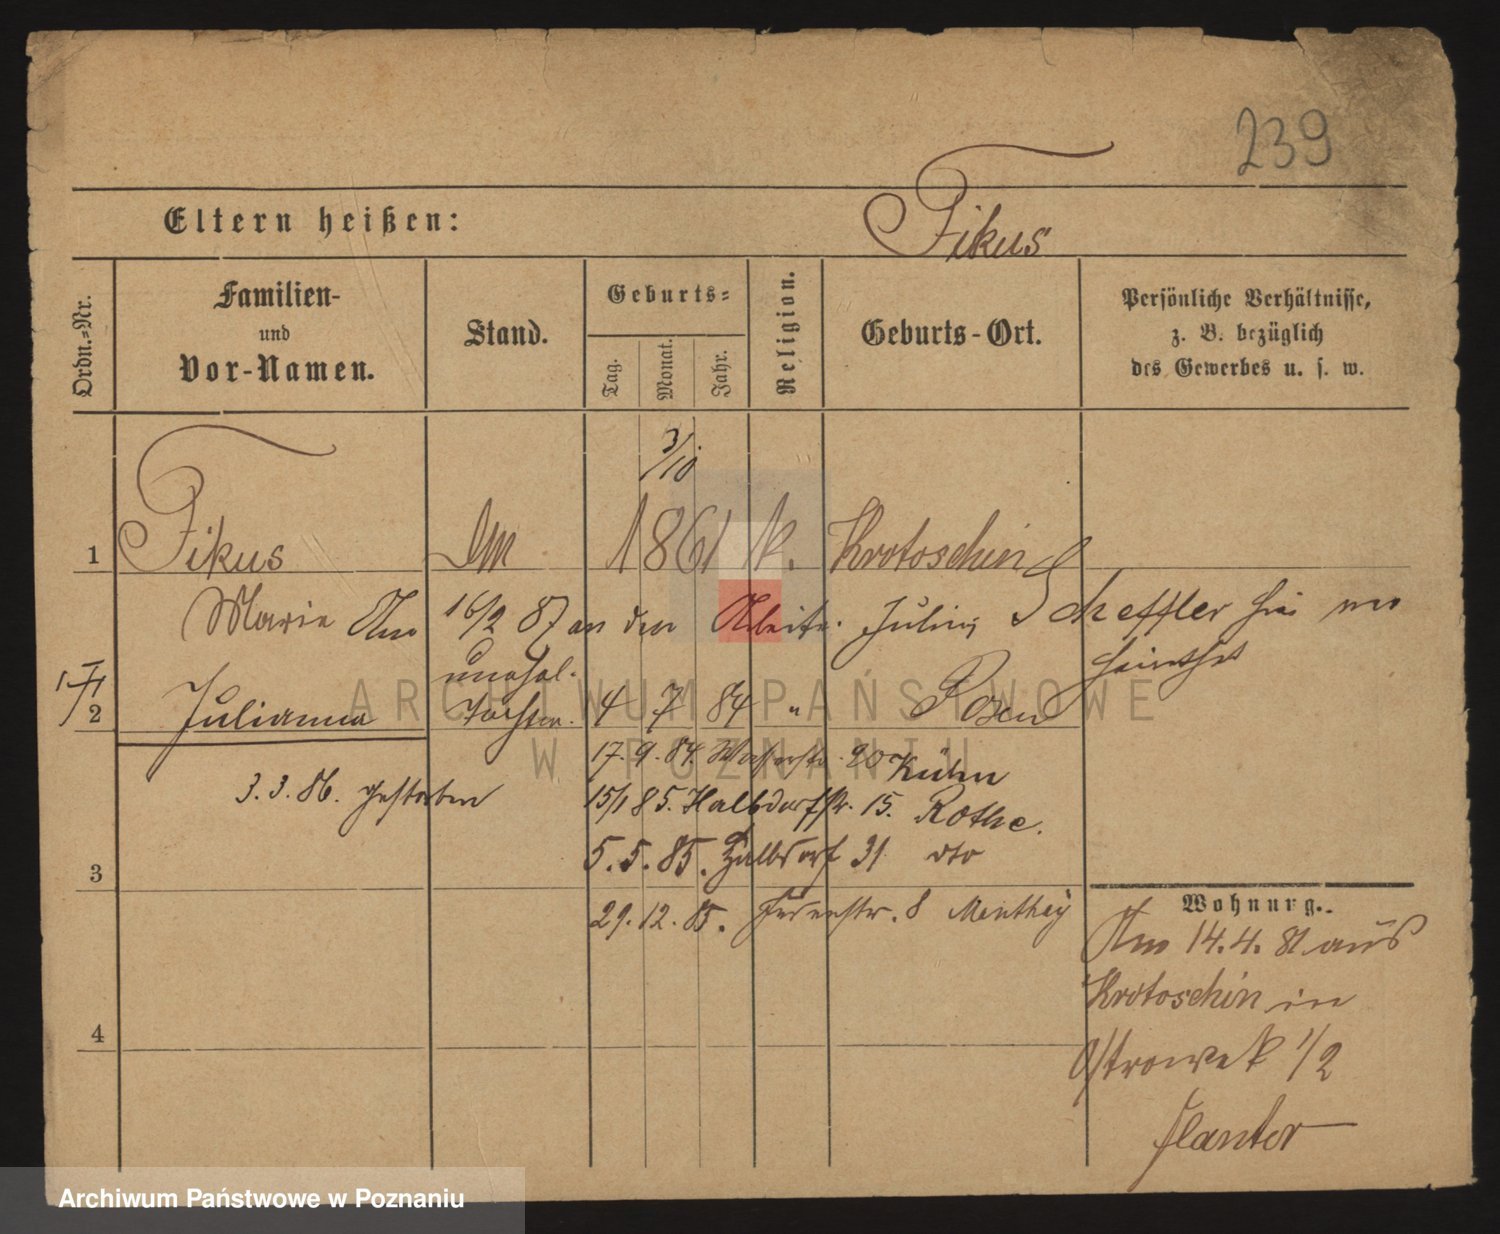 239
Eltern heißen: Fikus
Ordn.-Nr.
Familien-
und
Vor-Namen.
Stand.
Geburts-
Tag.
Monat.
Jahr.
Religion.
Geburts-Ort.
Persönliche Verhältnisse,
z. B. bezüglich
des Gewerbes u. s. w.
3/10
1 Fikus 1861 k. Krotoschin
Marie Am 16/2 87 an den Arbeiter Julius Scheffler
unehel.
2 Julianna Tochter 4 7 84 " Posen
17. 9. 84. Wasserstr. 20 Kühn
3. 3. 86. gestorben
15/1 85. Halbdorfstr. 15. Rothe.
5. 5. 85. Halbdorf 31 dto
3
29. 12. 85. 8
Wohnung.
Am 14. 4. 81 aus
Krotoschin in
Ostrowek 1/2
4
ARCHIWUM PAŃSTWOWE
W POZNANIU
Archiwum Państwowe w Poznaniu